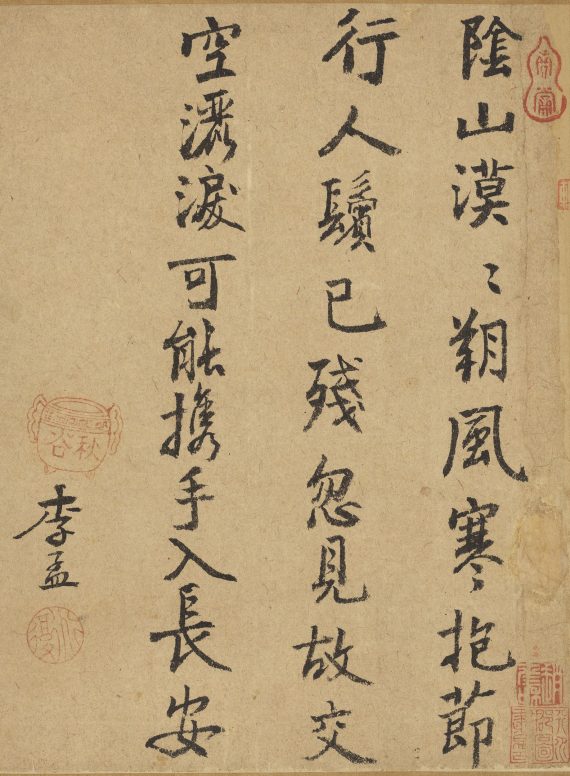 陰山漠〻朔風寒抱節
行人鬚已殘忽見故交
空灑淚可能攜手入長安
李孟
秋谷